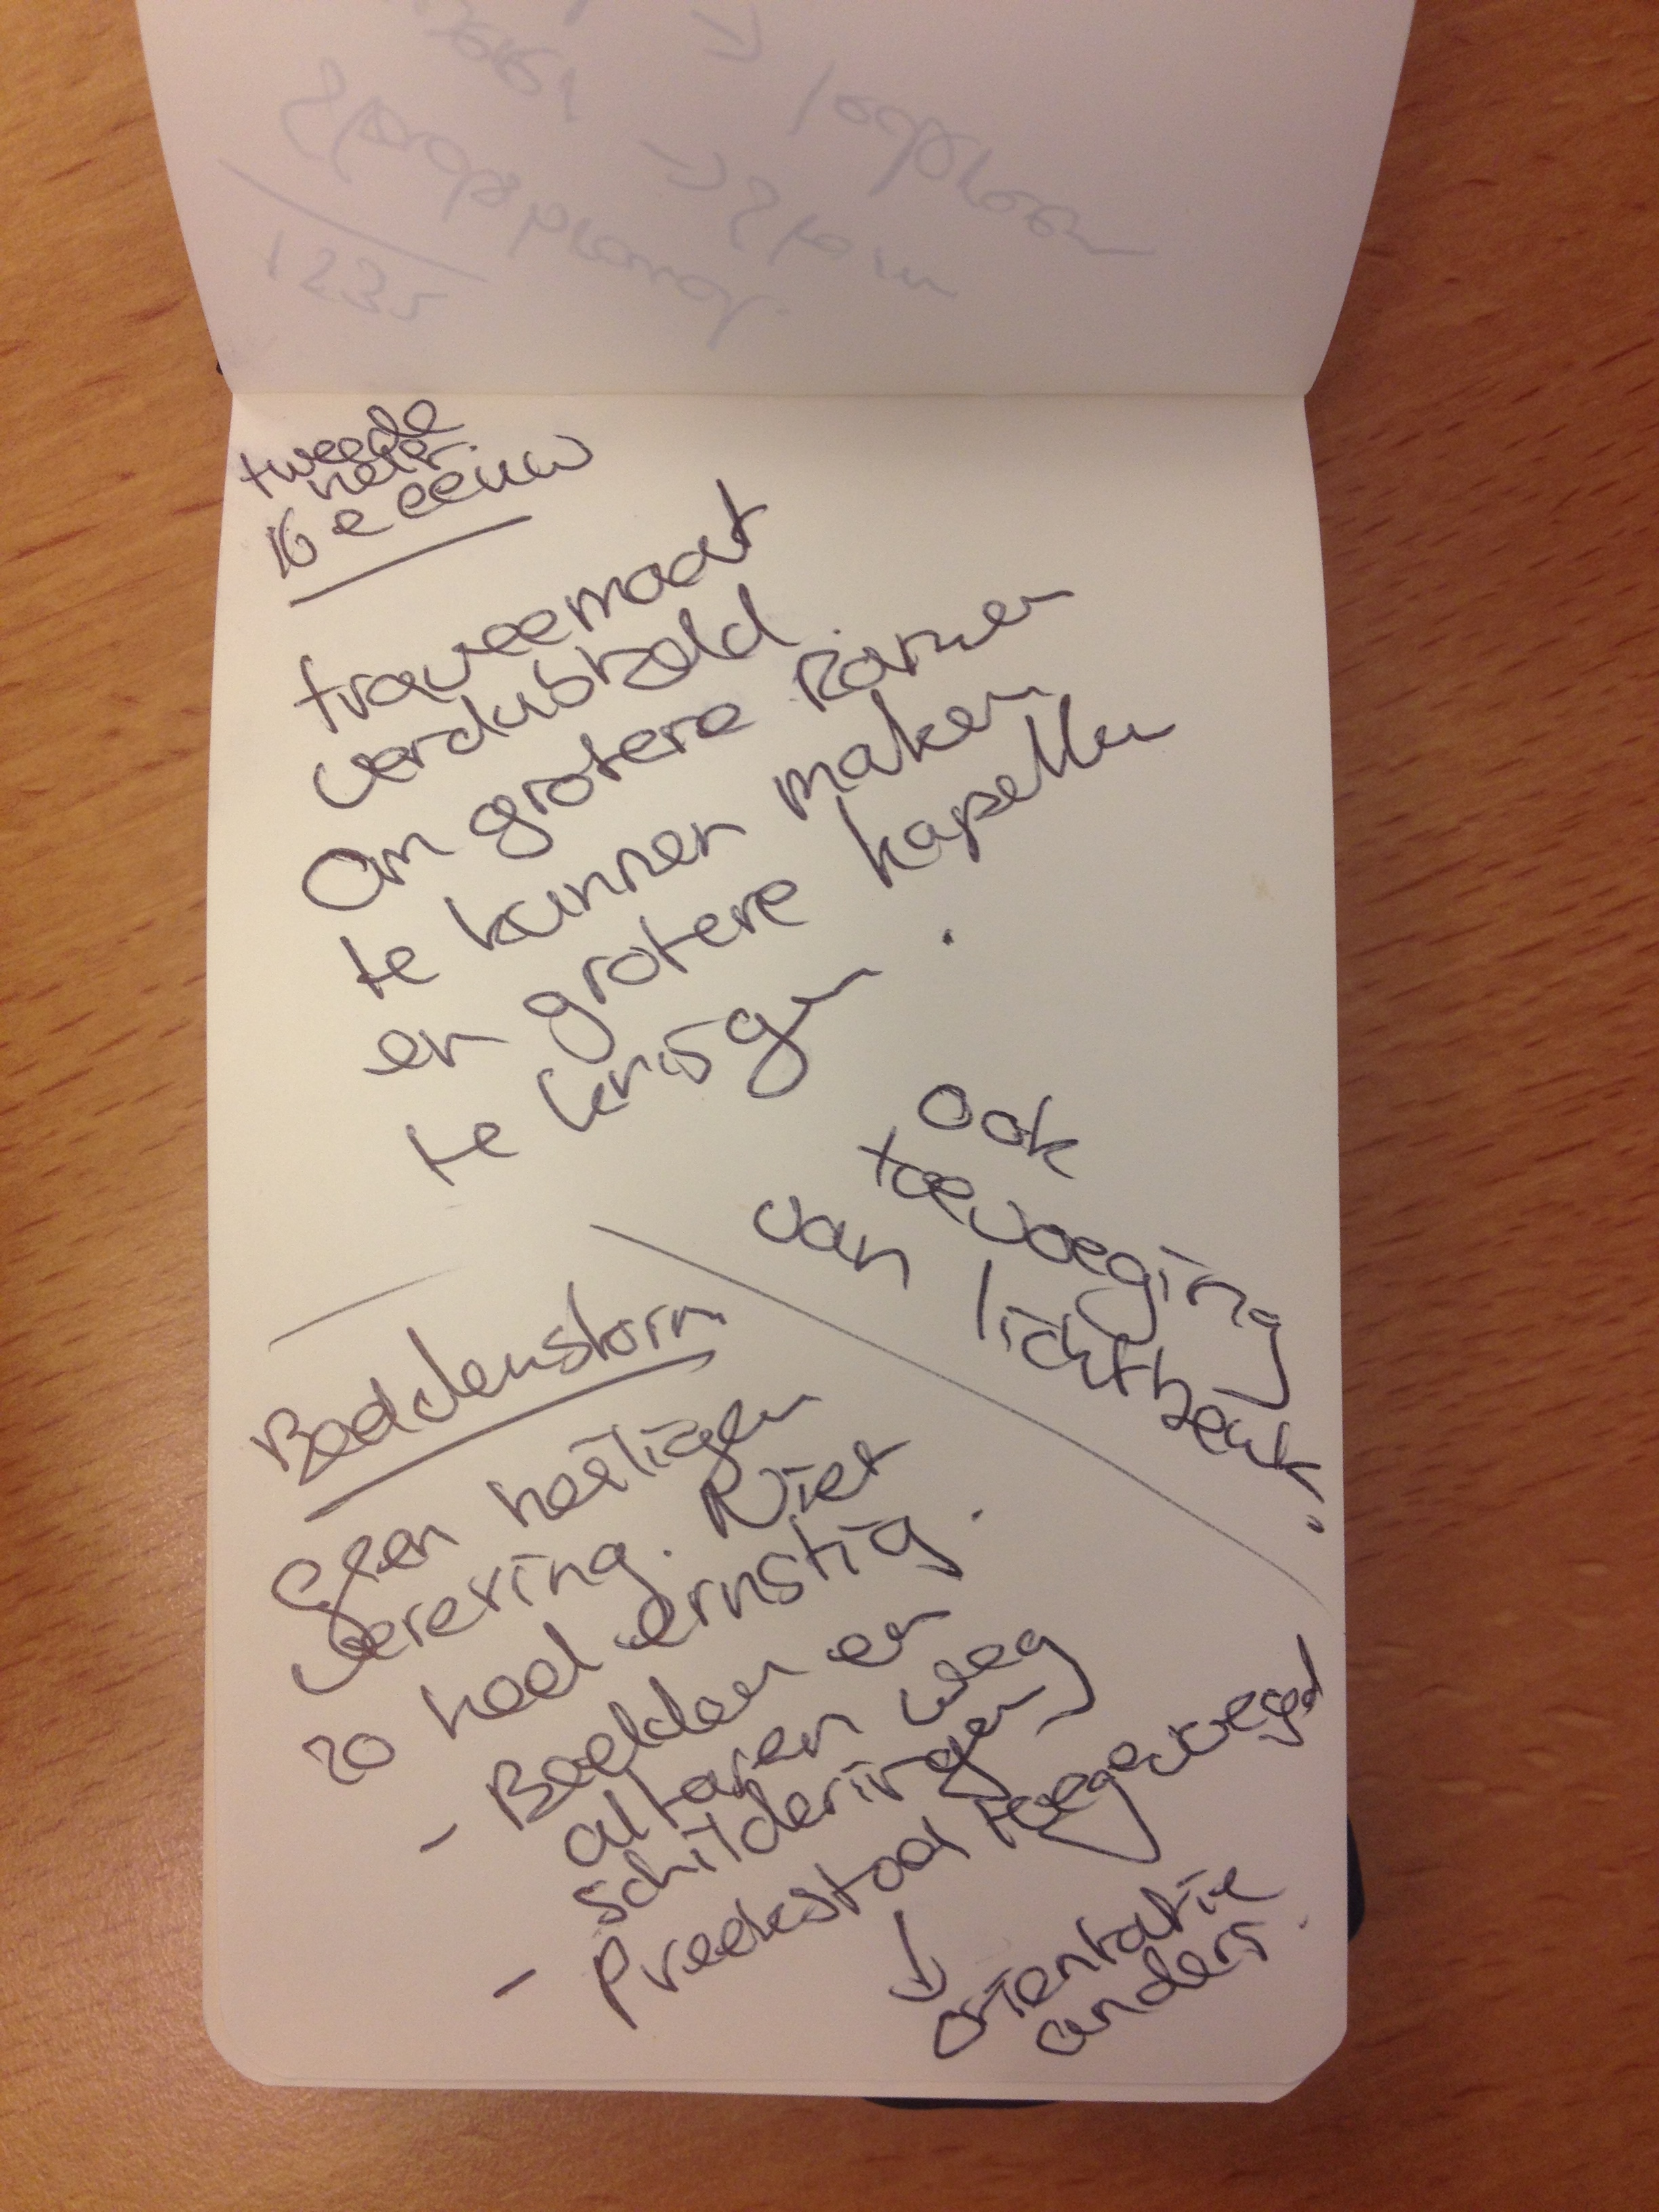 tweede
helft
16e eeuw
traveemaat
verdubbeld.
Om grotere ramen
te kunnen maken
en grotere kapellen
te krijgen.
ook
toevoeging
van lichtbeuk.
Beeldenstorm
geen heiligen
verering. Niet
zo heel ernstig.
- Beelden en
altaren weg
schilderingen
- Preekstoel toegevoegd
↓
orientatie
anders.